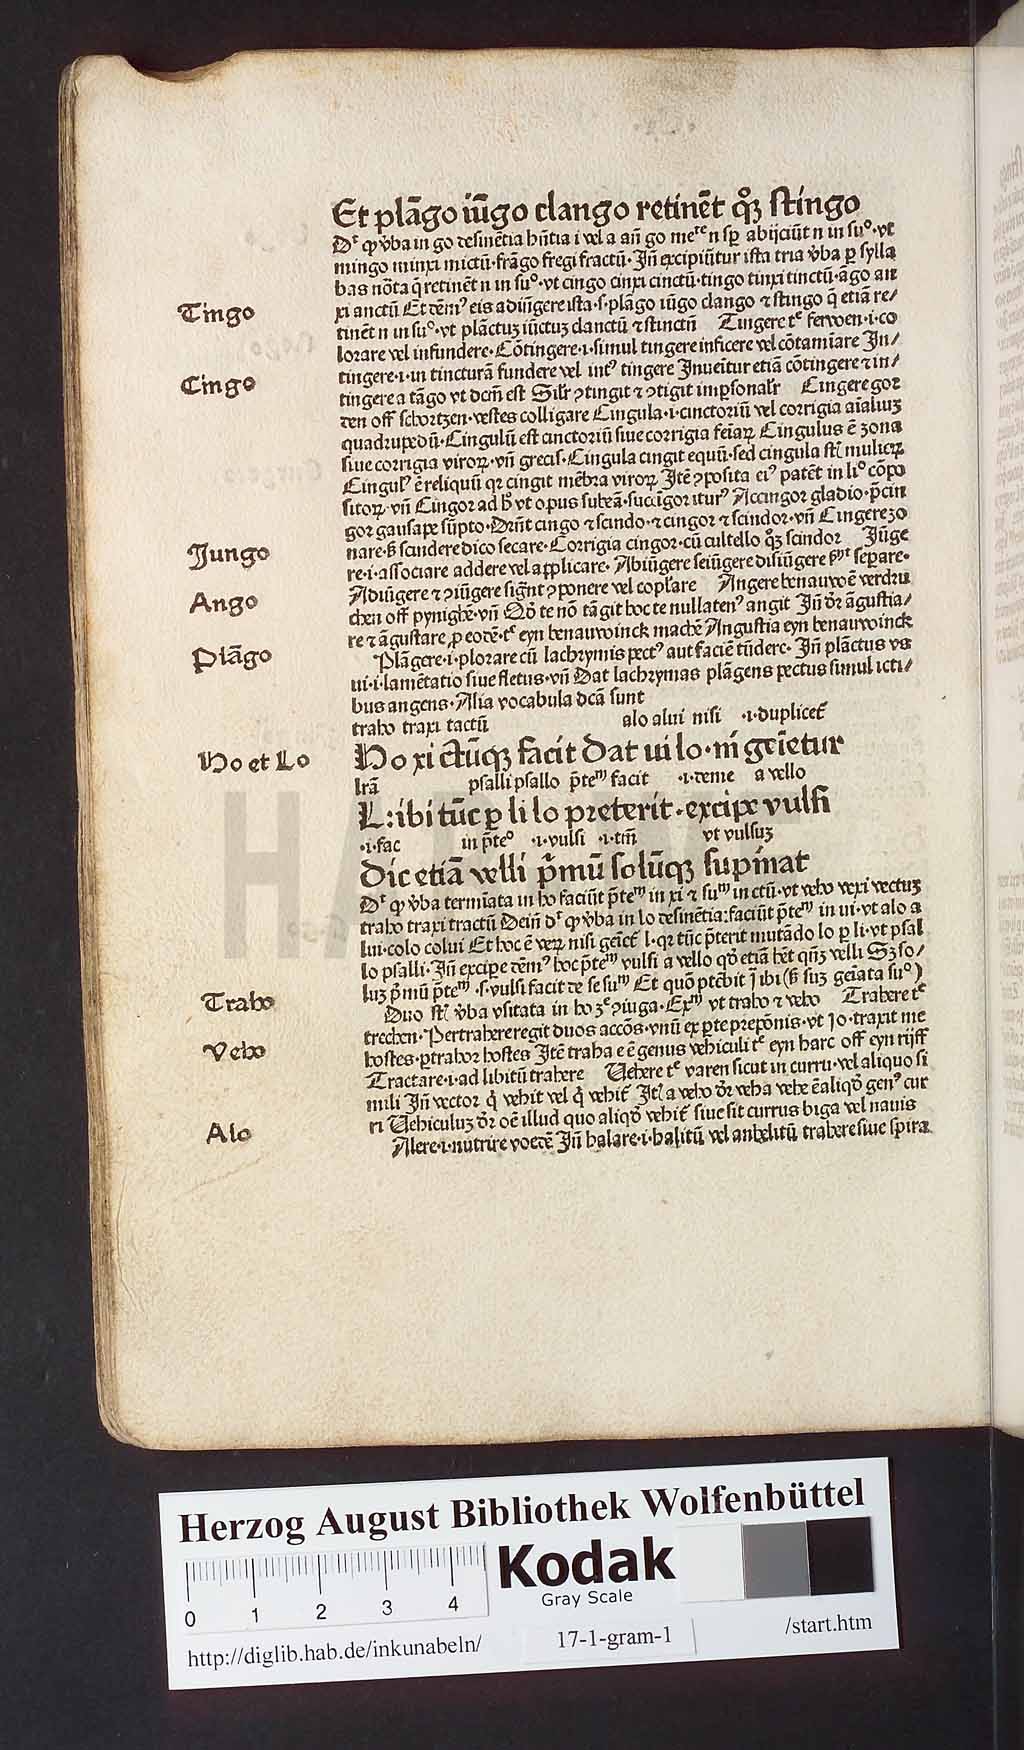 Et plāgo iūgo clango retinēt qꝫ stingo
Dr̄ ꝙ v̄ba in go desinētia hn̄tia i vel a an̄ go n sꝑ abijciūt n in suᵒ·vt
mingo minxi mictū·frāgo fregi fractū·Jn̄ excipiūtur ista tria v̄ba ꝑ sylla
bas nōta q̄ retinēt n in suᵒ·vt cingo cinxi cinctū·tingo tinxi tinctū·āgo an
xi anctū Et dēmꝰ eis adiūgere ista·s·plāgo iūgo clango ⁊ stingo q̄ etiā re/
Tingo
tinēt n in suᵒ·vt plāctuꝫ iūctuꝫ clanctū ⁊ stinctū Tingere tᶜ ferwen·i·co
lorare vel infundere·Cōtingere·i·simul tingere inficere vel cōtamīare Jn/
tingere·i·in tincturā fundere vel intꝰ tingere Jnueītur etiā cōtingere ⁊ in/
Cingo
tingere a tāgo vt dcm̄ est Silr̄ ꝯtingit ⁊ ꝯtigit imꝑsonalr̄ Cingere gor
den off schortzen·vestes colligare Cingula·i·cinctoriū vel corrigia aīaliuꝫ
quadrupedū·Cingulū est cinctoriū siue corrigia feīaꝝ Cingulus ē zona
siue corrigia viroꝝ·vn̄ grecis·Cingula cingit equū·sed cingula st̄ mulieꝝ
Cingulꝰ ē reliquū qꝛ cingit mēbra viroꝝ Jtē ꝯposita eiꝰ patēt in liᵒ cōpo
sitoꝝ·vn̄ Cingor ad h̄ vt opus subeā·succīgor iturꝰ Accingor gladio·p̄cin
gor gausape sūpto·Drn̄t cingo ⁊ scindo·⁊ cingor ⁊ scindor·vn̄ Cingere zo
nare·s̄ scindere dico secare·Corrigia cingor·cū cultello qꝫ scindor Jūge
Jungo
re·i·associare addere vel applicare·Abiūgere seiūgere disiūgere separare·
Adiūgere ⁊ ꝯiūgere sign̄t ꝯponere vel coplare Angere benauwē verdru
Ango
chen off pynighē·vn̄ Qd̄ te nō tāgit hoc te nullatenꝰ angit Jn̄ dr̄ āgustia/
re ⁊ āgustare ꝓ eodē·tᶜ eyn benauwinck machē Angustia eyn benauwinck
Plāgo
Plāgere·i·plorare cū lachrymis pectꝰ aut faciē tūdere·Jn̄ plāctus vs
ui·i·lamētatio siue fletus·vn̄ Dat lachrymas plāgens pectus simul icti/
bus angens·Alia vocabula dcā sunt
traho traxi tactū alo alui nisi ·i·duplicet̄
Ho et Lo
Ho xi ctūqꝫ facit Dat ui lo·nī geīetur
lrā psalli psallo p̄teᵐ facit ·i·deme a vello
L:ibi tūc ꝑ li lo preterit·excipe vulsi
·i·fac in p̄teᵒ ·i·vulsi ·i·tm̄ vt vulsuꝫ
Dic etiā velli p̄mū solūqꝫ supīnat
Dr̄ ꝙ v̄ba termīata in ho faciūt p̄teᵐ in xi ⁊ suᵐ in ctū·vt veho vexi vectuꝫ
traho traxi tractū Dein̄ dr̄ ꝙ v̄ba in lo desinētia:faciūt p̄teᵐ in ui·vt alo a
lui·colo colui Et hoc ē veꝝ nisi gēiet̄ l·qꝛ tūc p̄terit mutādo lo ꝑ li·vt psal
lo psalli·Jn̄ excipe dēmꝰ hoc p̄teᵐ vulsi a vello qd̄ etiā hēt qn̄ꝫ velli Sꝫ so/
luꝫ p̄mū p̄teᵐ·s·vulsi facit de se suᵐ Et quō ptēbit ī ibi (s̄ suꝫ geīata suᵒ)
Traho
Duo st̄ v̄ba vsitata in ho ꝯiuga·Exᵐ vt traho ⁊ veho Trahere tᶜ
trechen·Pertrahere regit duos accōs·vnū ex ꝑte prepōnis·vt Jo·traxit me
Veho
hostes·ꝑtrahor hostes Jtē traha e ē genus vehiculi tᶜ eyn harc off eyn rijff
Tractare·i·ad libitū trahere Uehere tᶜ varen sicut in curru·vel aliquo si
mili Jn̄ vector q̄ vehit vel q̄ vehit̄ Jtē a veho dr̄ veha vehe ē aliqd̄ genꝰ cur
ri Uehiculuꝫ dr̄ oē illud quo aliqd̄ vehit̄ siue sit currus biga vel nauis
Alo
Alere·i·nutrire voedē Jn̄ halare·i·halitū vel anhelitū trahere siue spira
Herzog August Bibliothek Wolfenbüttel
Kodak
Gray Scale
0 1 2 3 4
http://diglib.hab.de/inkunabeln/
17-1-gram-1
/start.htm